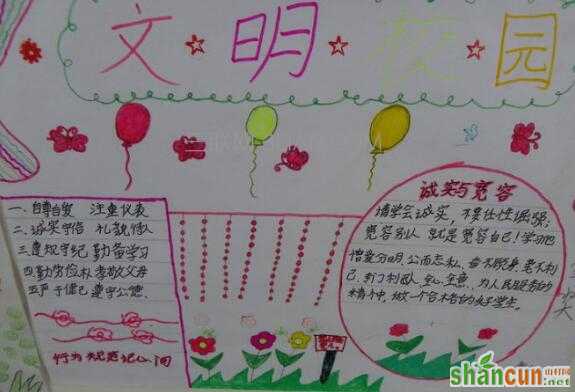 文明校园
一、自尊自爱 注重仪表
二、诚实守信 礼貌待人
三、遵规守纪 勤奋学习
四勤劳俭朴 孝敬父母
五严于律己 遵守公德
行为规范记心间
诚实与宽容
请学会诚实,不要任性倔强,
宽容别人 就是宽容自己!学习他
恺爱分明,公而忘私,奋不顾身,毫不利
己,专门利人,全心全意,为人民服务的
精神,做一个合格的好学生。
shancun
山村网
.net